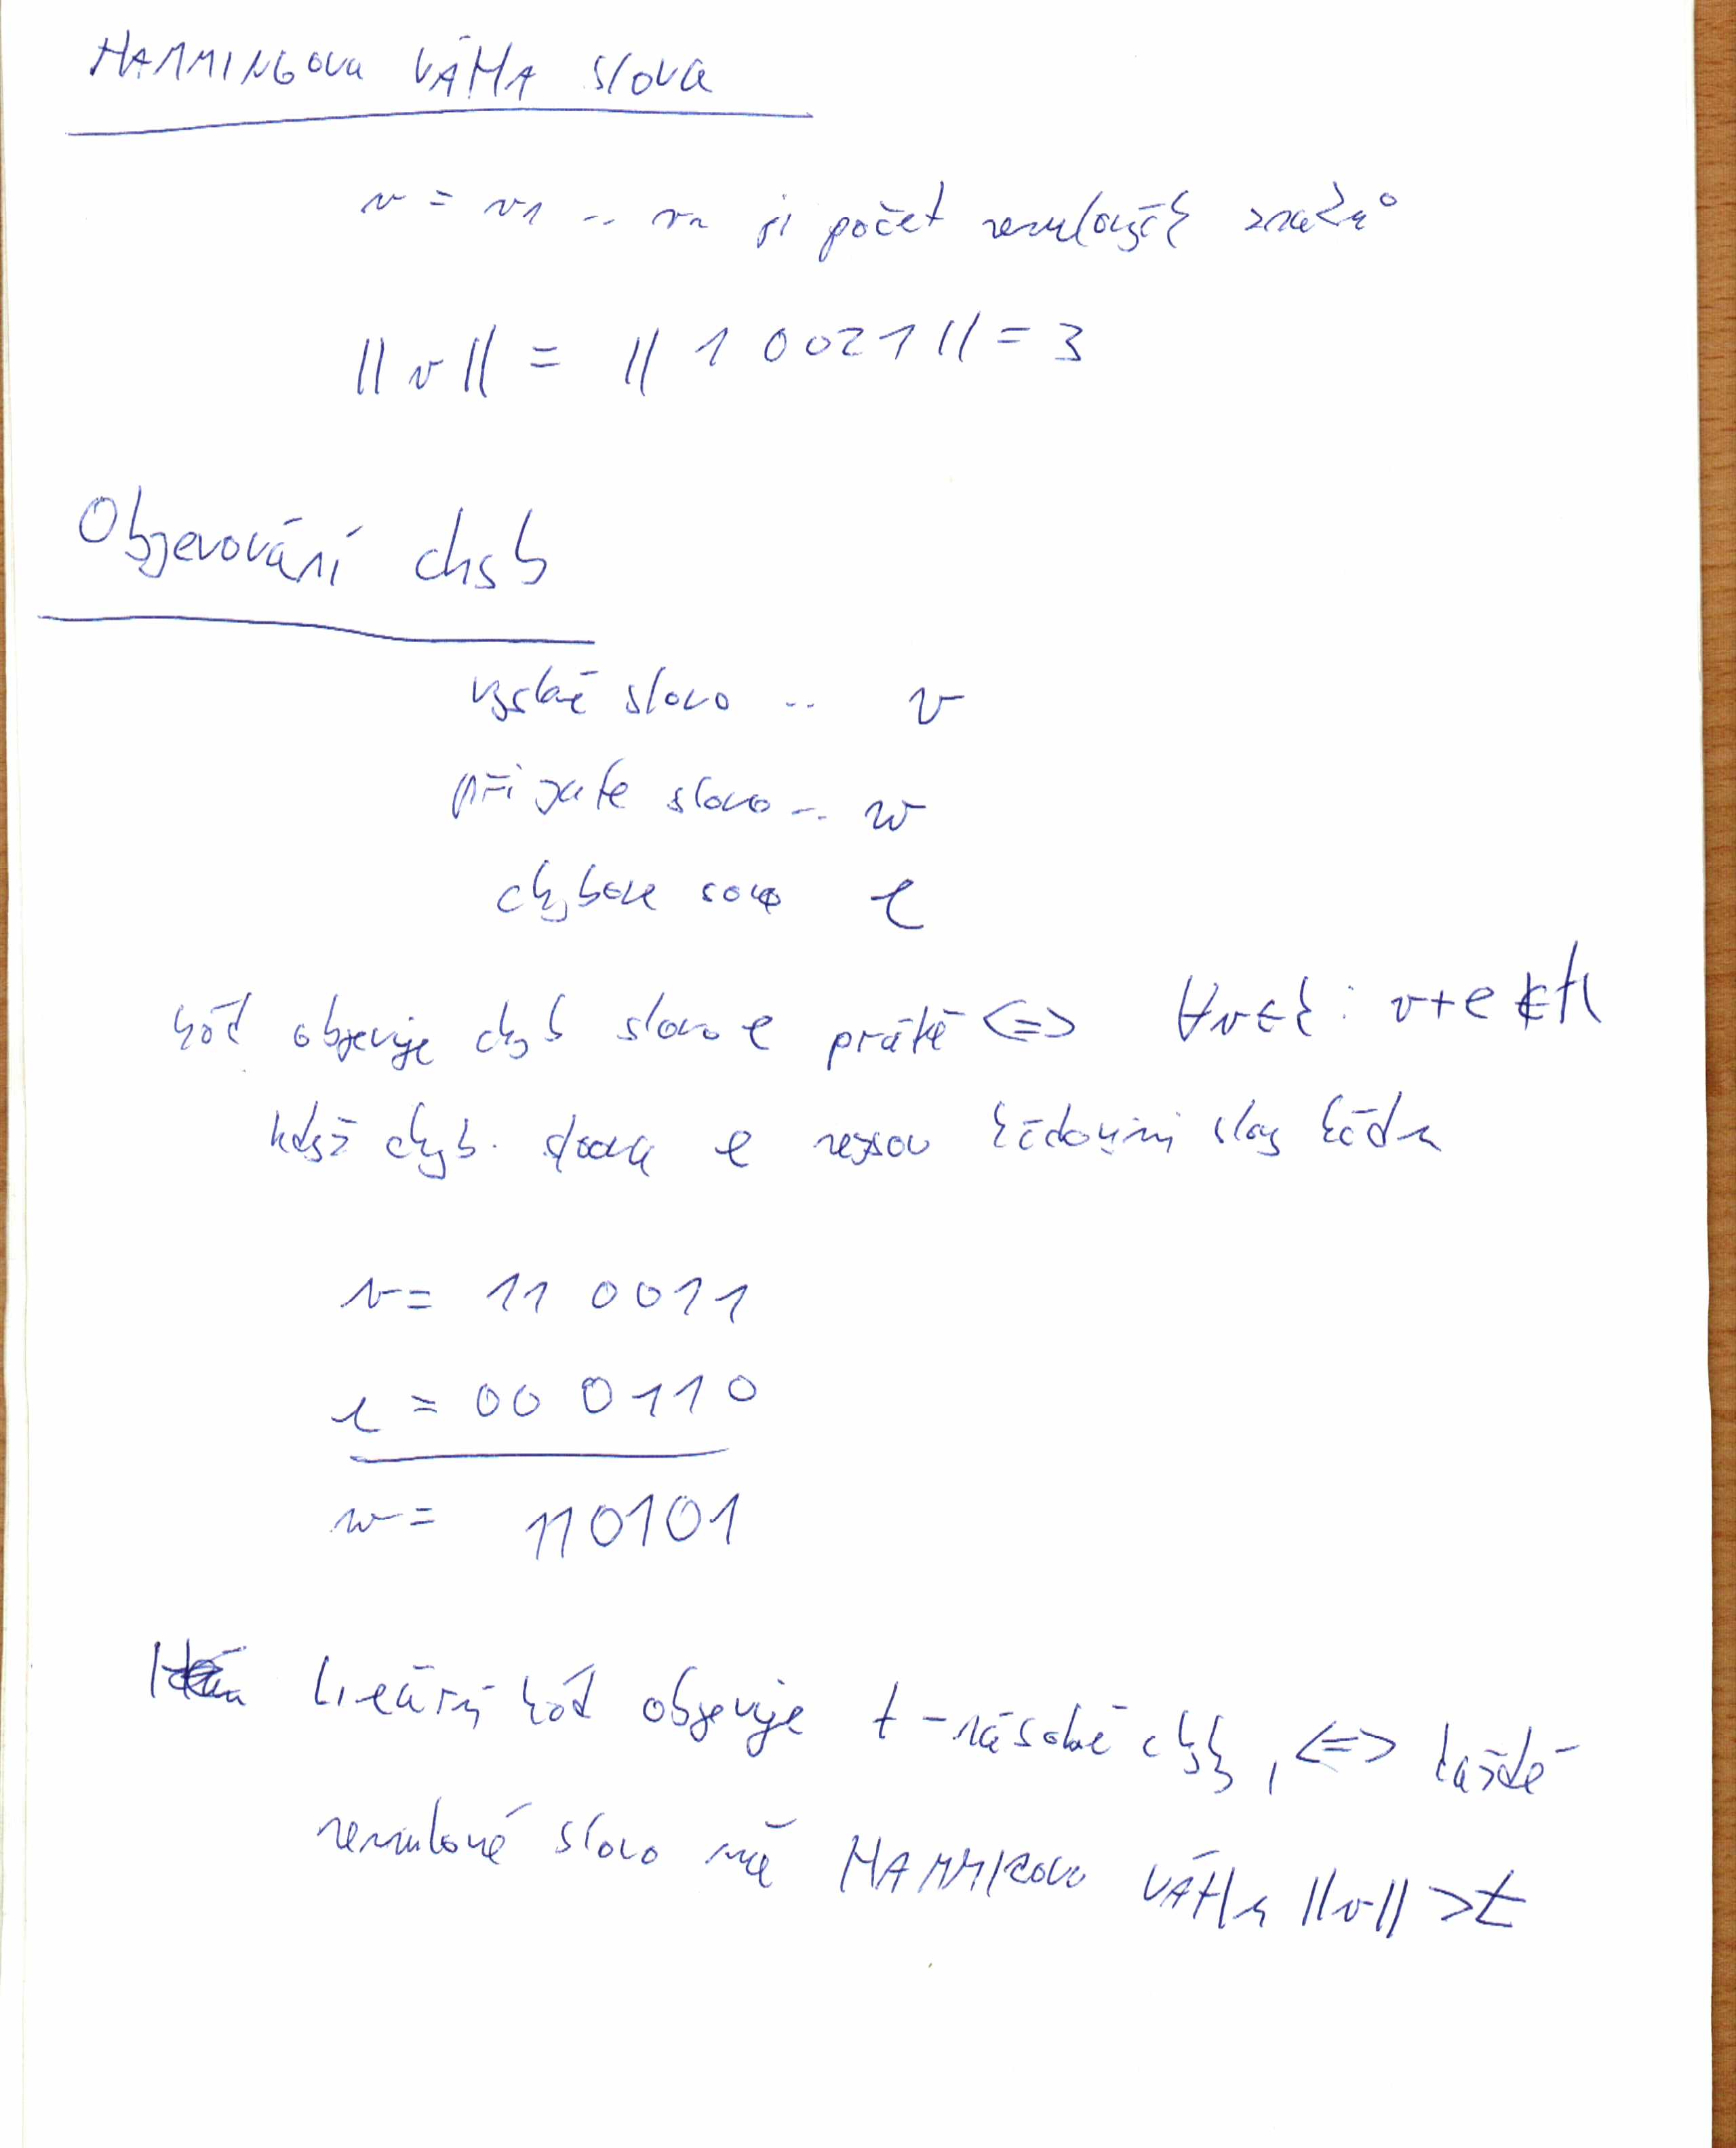 HAMMINGova VÁHA slova
v = v1 .. vn je počet nenulových znaků
||v|| = || 1 0021 || = 3
Objevování chyb
vyslané slovo .. v
přijaté slovo .. w
chybové slovo e
kód objevuje chyb slovo e právě <=> ∀v∈K : v+e ∉ K
když chyb. slova e nejsou kódovými slovy kódu
v = 11 0011
e = 00 0110
w = 110101
Lineární kód objevuje t-násobné chyby, <=> každé
nenulové slovo má VÁHu ||v|| > t